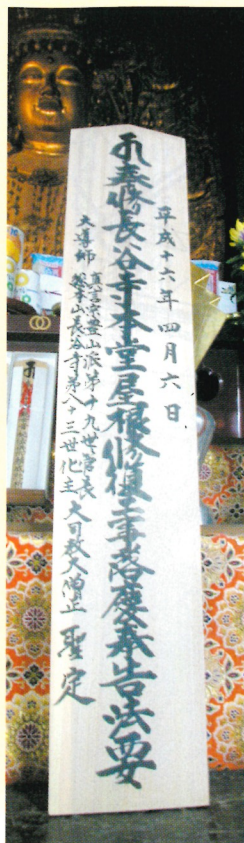 平成十六年四月六日
奉修長谷寺本堂屋根修復工事落慶奉告法要
大導師
真言宗豊山派第廿九世管長
総本山長谷寺第八十三世化主
大司教大僧正 聖定